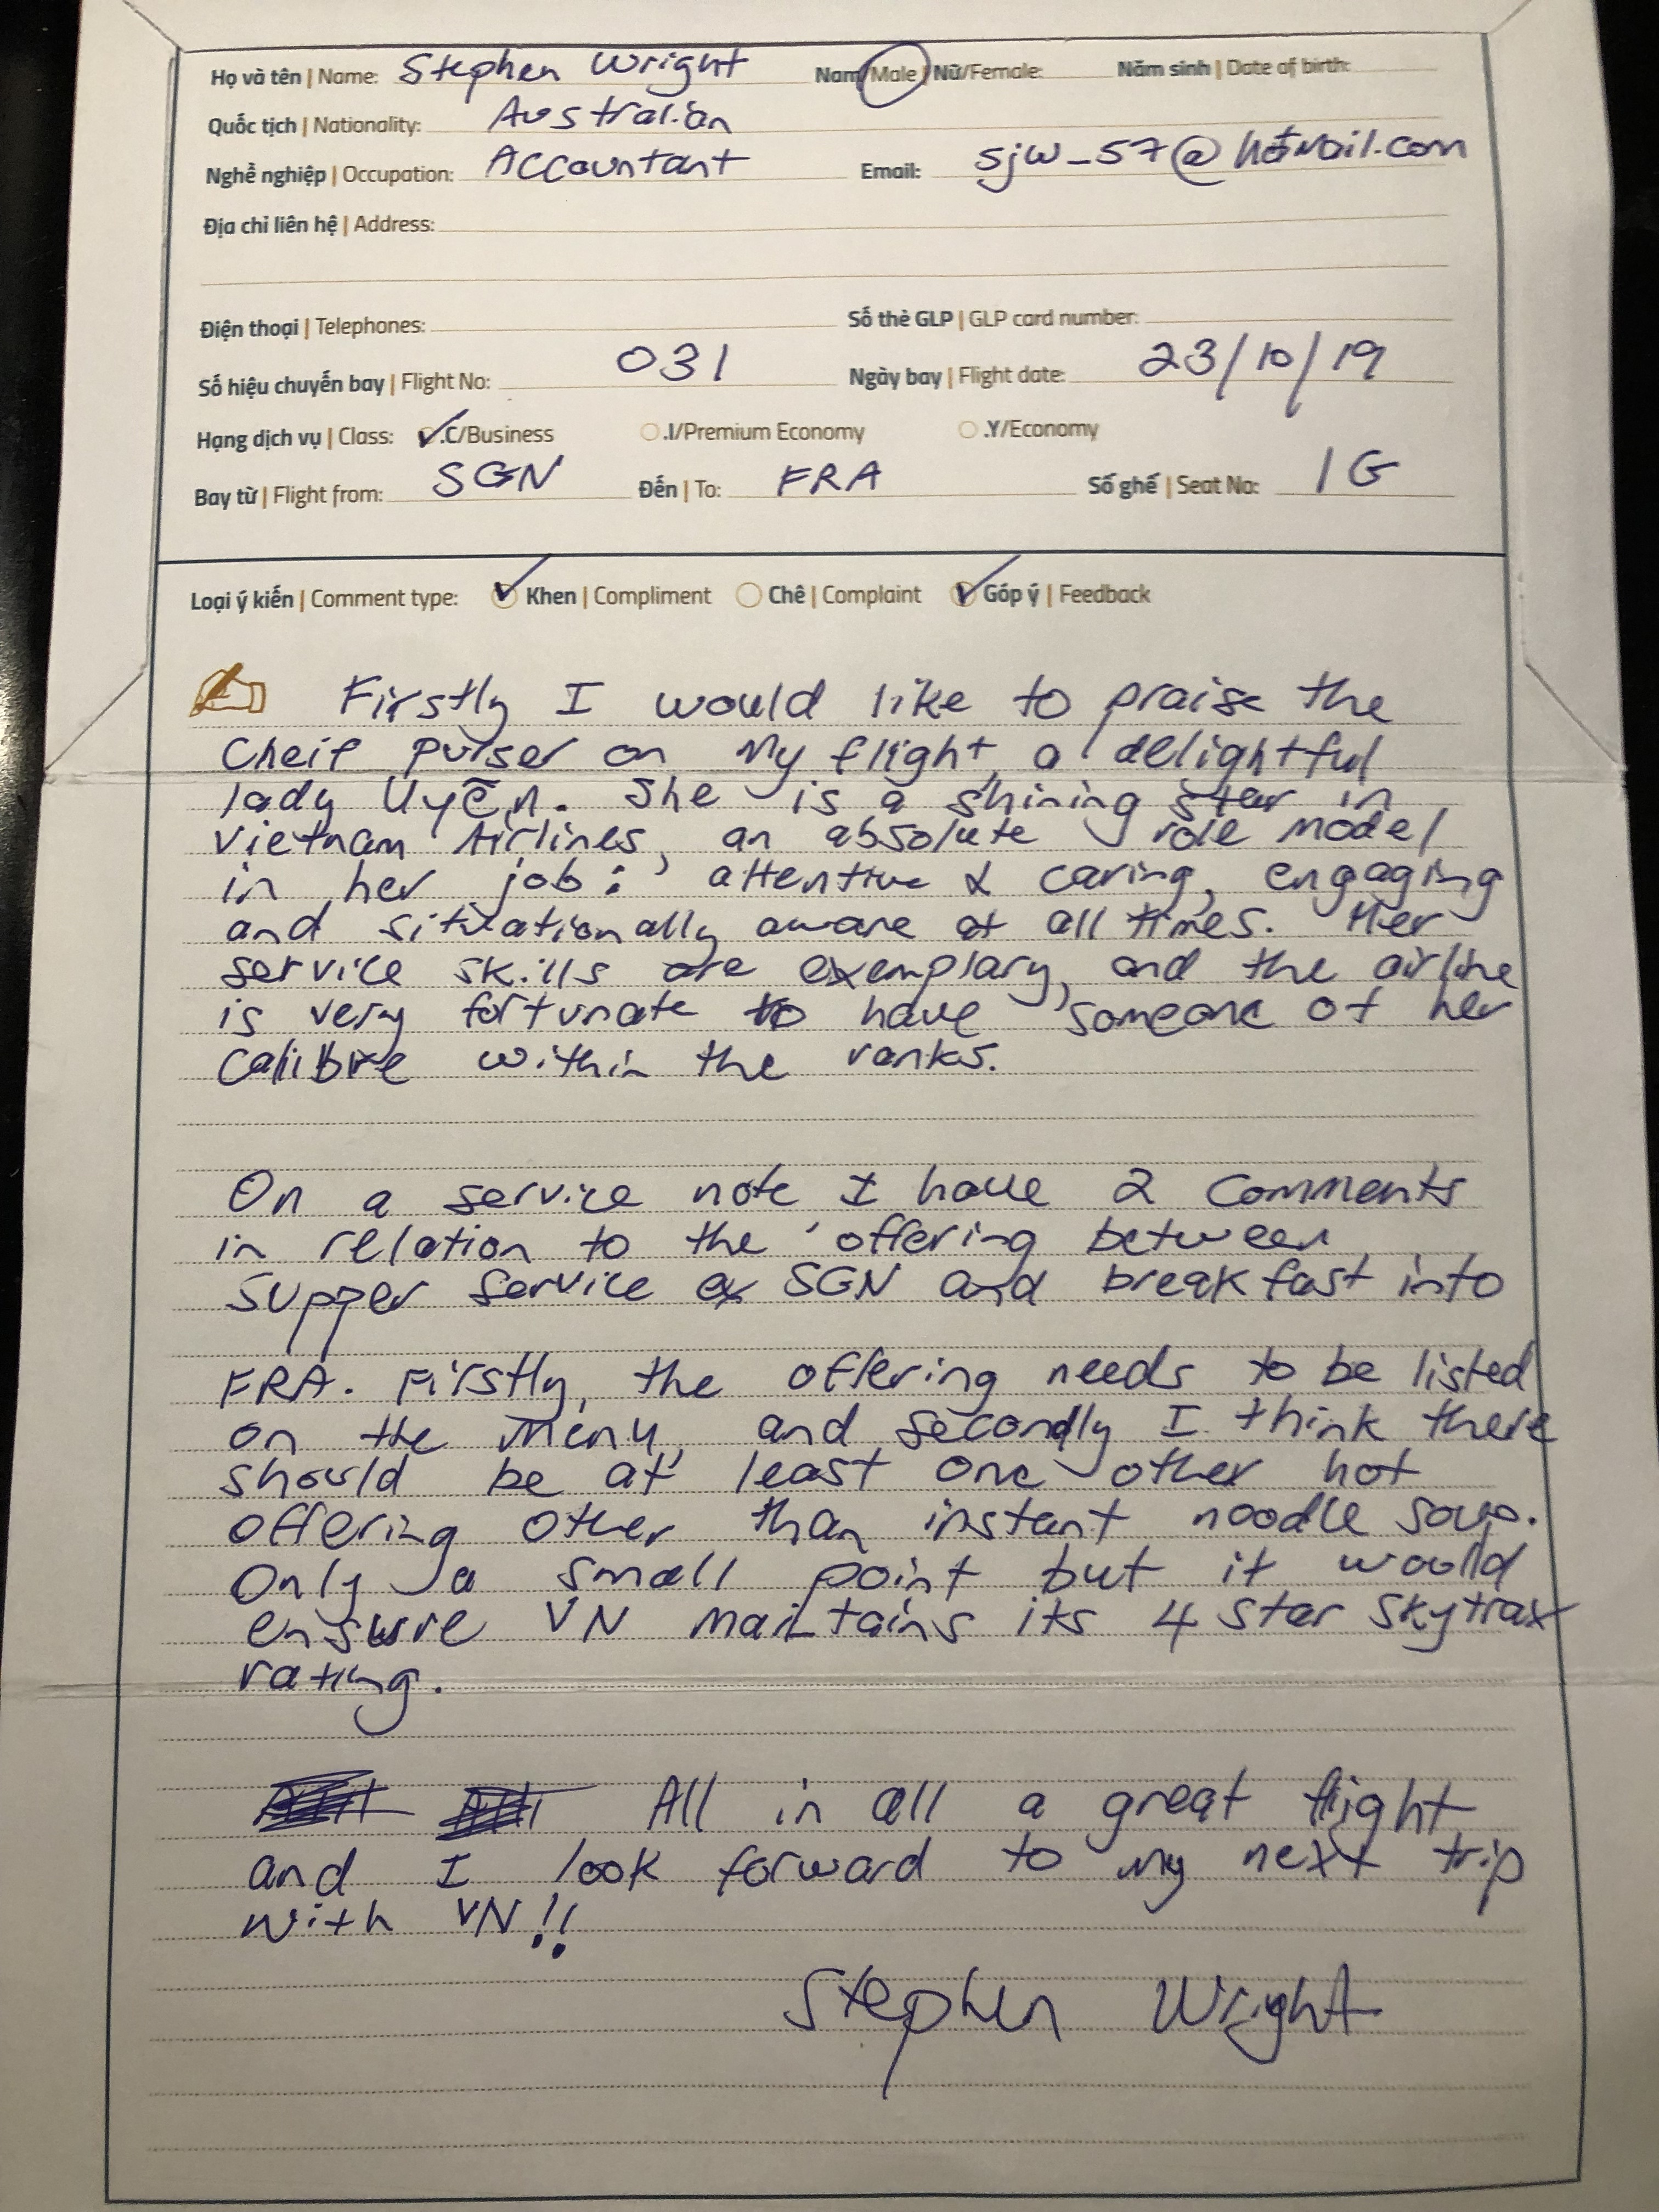 Họ và tên | Name: Stephen Wright Nam/Male | Nữ/Female: Năm sinh | Date of birth:
Quốc tịch | Nationality: Australian
Nghề nghiệp | Occupation: Accountant Email: sjw_57@hotmail.com
Địa chỉ liên hệ | Address:
Điện thoại | Telephones: Số thẻ GLP | GLP card number:
Số hiệu chuyến bay | Flight No: 031 Ngày bay | Flight date: 23/10/19
Hạng dịch vụ | Class: .C/Business .I/Premium Economy .Y/Economy
Bay từ | Flight from: SGN Đến | To: FRA Số ghế | Seat No: 1G
Loại ý kiến | Comment type: Khen | Compliment Chê | Complaint Góp ý | Feedback
Firstly I would like to praise the
Cheif purser on my flight, a delightful
lady Uyēn. She is a shining star in
Vietnam Airlines, an absolute role model
in her job: attentive & caring, engaging
and situationally aware at all times. Her
service skills are exemplary, and the airline
is very fortunate to have someone of her
calibre within the ranks.
On a service note I have 2 comments
in relation to the offering between
supper service ex SGN and breakfast into
FRA. Firstly, the offering needs to be listed
on the menu, and secondly I think there
should be at least one other hot
offering other than instant noodle soup.
Only a small point but it would
ensure VN maintains its 4 star Skytrax
rating.
All in all a great flight
and I look forward to my next trip
with VN!!
Stephen Wright